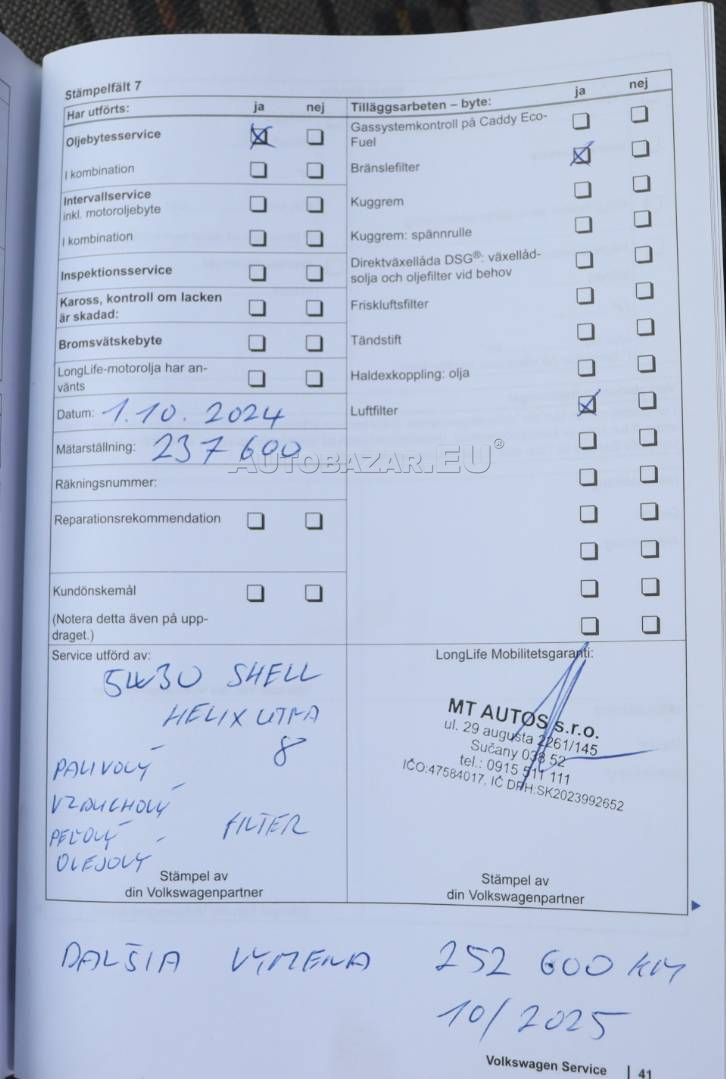 Stämpelfält 7
Har utförts: ja nej
Oljebytesservice
I kombination
Intervallservice
inkl. motoroljebyte
I kombination
Inspektionsservice
Kaross, kontroll om lacken
är skadad:
Bromsvätskebyte
LongLife-motorolja har an-
vänts
Datum: 1.10.2024
Mätarställning: 237 600
Räkningsnummer:
Reparationsrekommendation
Kundönskemål
(Notera detta även på upp-
draget.)
Tilläggsarbeten – byte: ja nej
Gassystemkontroll på Caddy Eco-
Fuel
Bränslefilter
Kuggrem
Kuggrem: spännrulle
Direktväxellåda DSG®: växellåd-
solja och oljefilter vid behov
Friskluftsfilter
Tändstift
Haldexkoppling: olja
Luftfilter
AUTOBAZAR.EU®
Service utförd av:
5W30 SHELL
HELIX ULTRA
8
PALIVOVÝ
VZDUCHOVÝ
PEĽOVÝ FILTER
OLEJOVÝ
Stämpel av
din Volkswagenpartner
LongLife Mobilitetsgaranti:
MT AUTOS s.r.o.
ul. 29 augusta 2261/145
Sučany 038 52
tel.: 0915 511 111
IČO:47584017, IČ DPH:SK2023992652
Stämpel av
din Volkswagenpartner
DALŠIA VÝMENA 252 600 KM
10/2025
Volkswagen Service | 41